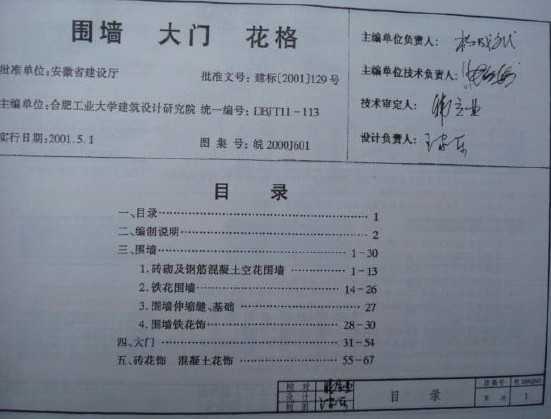 围墙 大门 花格
批准单位:安徽省建设厅 批准文号:建标[2001]129号
主编单位:合肥工业大学建筑设计研究院 统一编号:DBJT11-113
实行日期:2001.5.1 图集号:皖2000J601
主编单位负责人:
主编单位技术负责人:
技术审定人:
设计负责人:
目录
一、目录 1
二、编制说明 2
三、围墙 1-30
1.砖砌及钢筋混凝土空花围墙 1-13
2.铁花围墙 14-26
3.围墙伸缩缝、基础 27
4.围墙铁花饰 28-30
四、大门 31-54
五、砖花饰 混凝土花饰 55-67
校对
设计
制图
目录
图集号 皖2000J601
页次 1